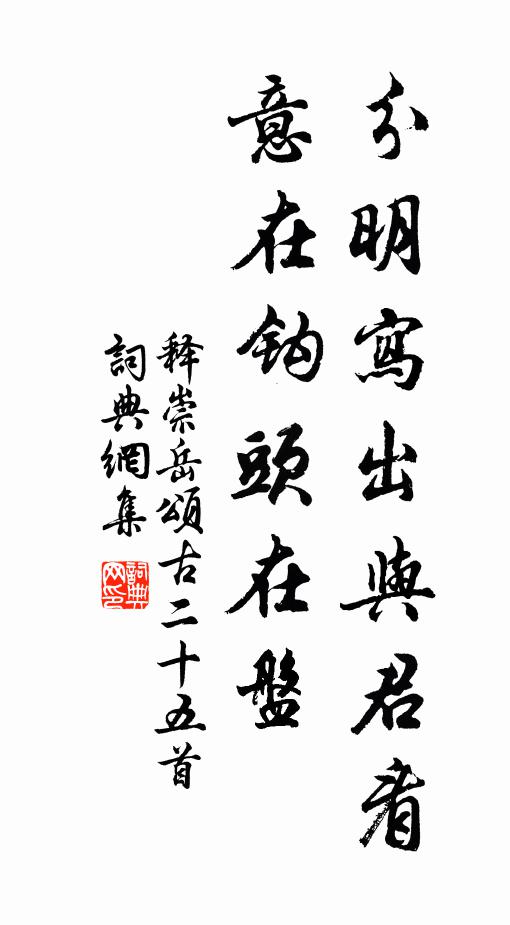 分明寫出與君看
意在鈎頭在盤
释崇岳頌古二十五首
詞典網集
詞典网印